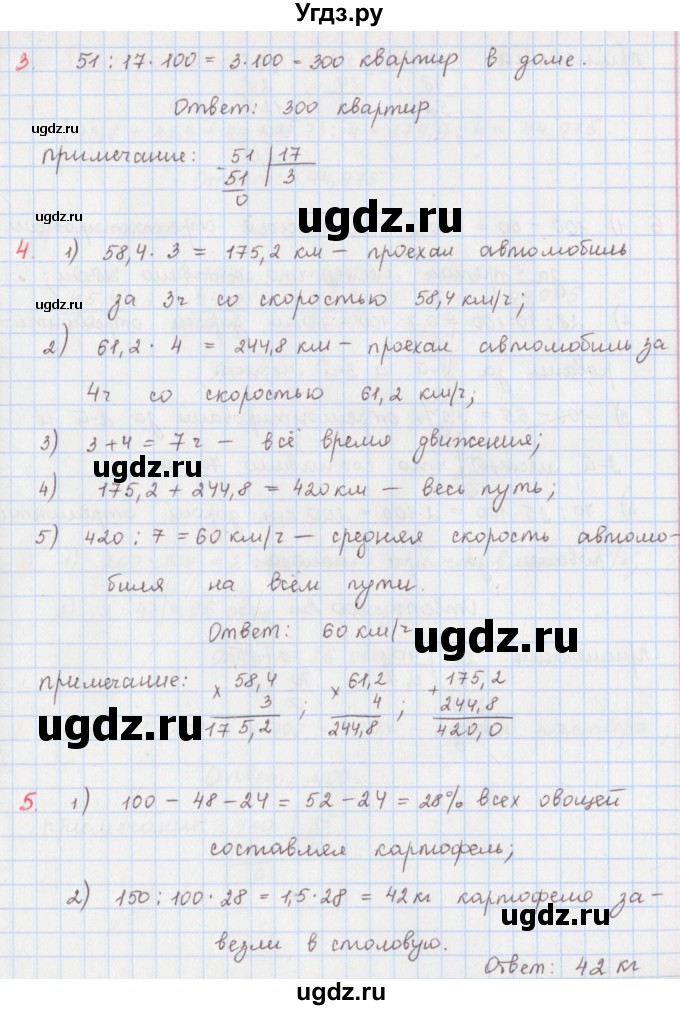 Угдз.ру
3. 51 : 17 · 100 = 3 · 100 = 300 квартир в доме.
Ответ: 300 квартир
ugdz.ru
примечание: 51 | 17
- 51 | 3
0
ugdz.ru
ugdz.ru
4. 1) 58,4 · 3 = 175,2 км – проехал автомобиль
за 3ч со скоростью 58,4 км/ч;
ugdz.ru
2) 61,2 · 4 = 244,8 км – проехал автомобиль за
4ч со скоростью 61,2 км/ч;
ugdz.ru
3) 3 + 4 = 7 ч – всё время движения;
ugdz.ru
4) 175,2 + 244,8 = 420 км – весь путь;
5) 420 : 7 = 60 км/ч – средняя скорость автомо-
биля на всём пути.
Ответ: 60 км/ч
ugdz.ru
примечание: × 58,4 × 61,2 + 175,2
3 ; 4 ; 244,8
175,2 244,8 420,0
ugdz.ru
ugdz.ru
5. 1) 100 – 48 – 24 = 52 – 24 = 28% всех овощей
составлял картофель;
ugdz.ru
2) 150 : 100 · 28 = 1,5 · 28 = 42 кг картофеля за-
везли в столовую.
ugdz.ru
Ответ: 42 кг
ugdz.ru